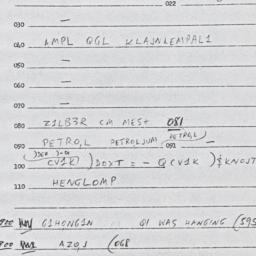 022
030 —
040 AMPL QGL KLAJNLEMPAL1
050 —
060 —
070 —
080 Z1LB3R CM MEST 081
090 PETRO,L PETROLJUM 091 PETR0,L
100 (CV1K) = - Q CV1K
110 HENGLOMP
G1HONG1N Q1 WAS HANGING (595
AZ0,J (068